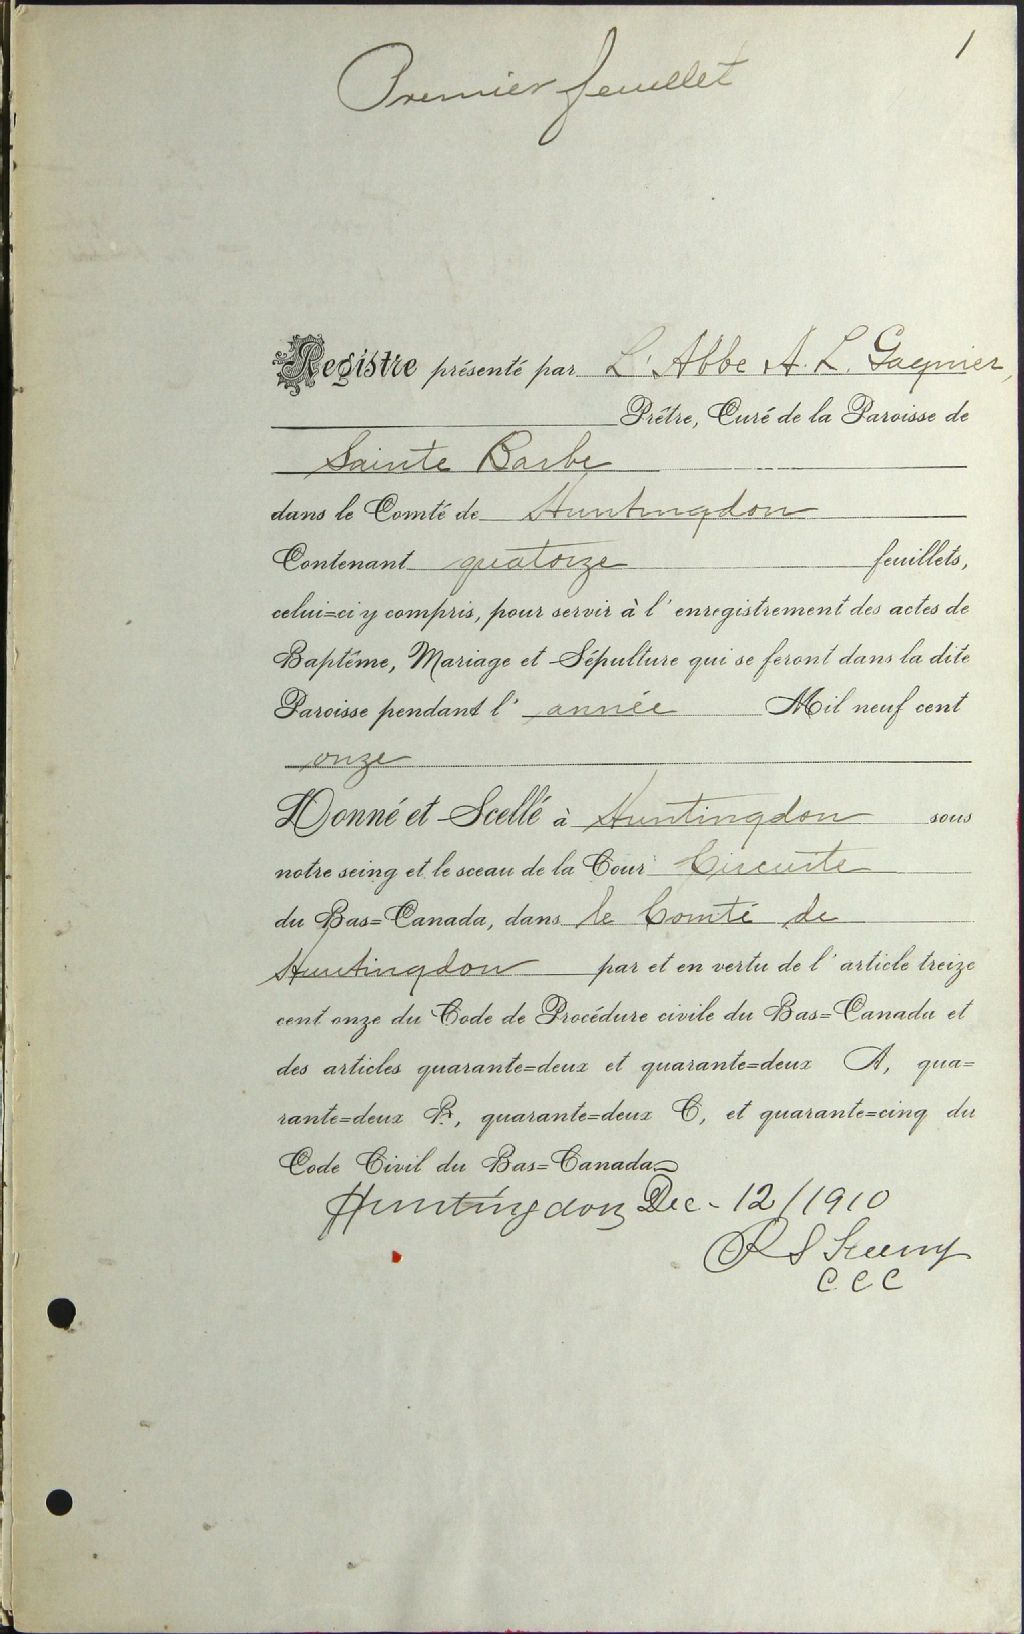 1
Premier feuillet
Registre présenté par L'Abbe A. L. Gagnier,
Prêtre, Curé de la Paroisse de
Sainte Barbe
dans le Comté de Huntingdon
Contenant quatorze feuillets,
celui=ci y compris, pour servir à l'enregistrement des actes de
Baptême, Mariage et Sépulture qui se feront dans la dite
Paroisse pendant l'année Mil neuf cent
onze
Donné et Scellé à Huntingdon sous
notre seing et le sceau de la Cour Circuite
du Bas=Canada, dans le Comté de
Huntingdon par et en vertu de l'article treize
cent onze du Code de Procédure civile du Bas=Canada et
des articles quarante=deux et quarante=deux A, qua=
rante=deux B, quarante=deux C, et quarante=cinq du
Code Civil du Bas=Canada
Huntingdon Dec - 12/1910
R S
C C C